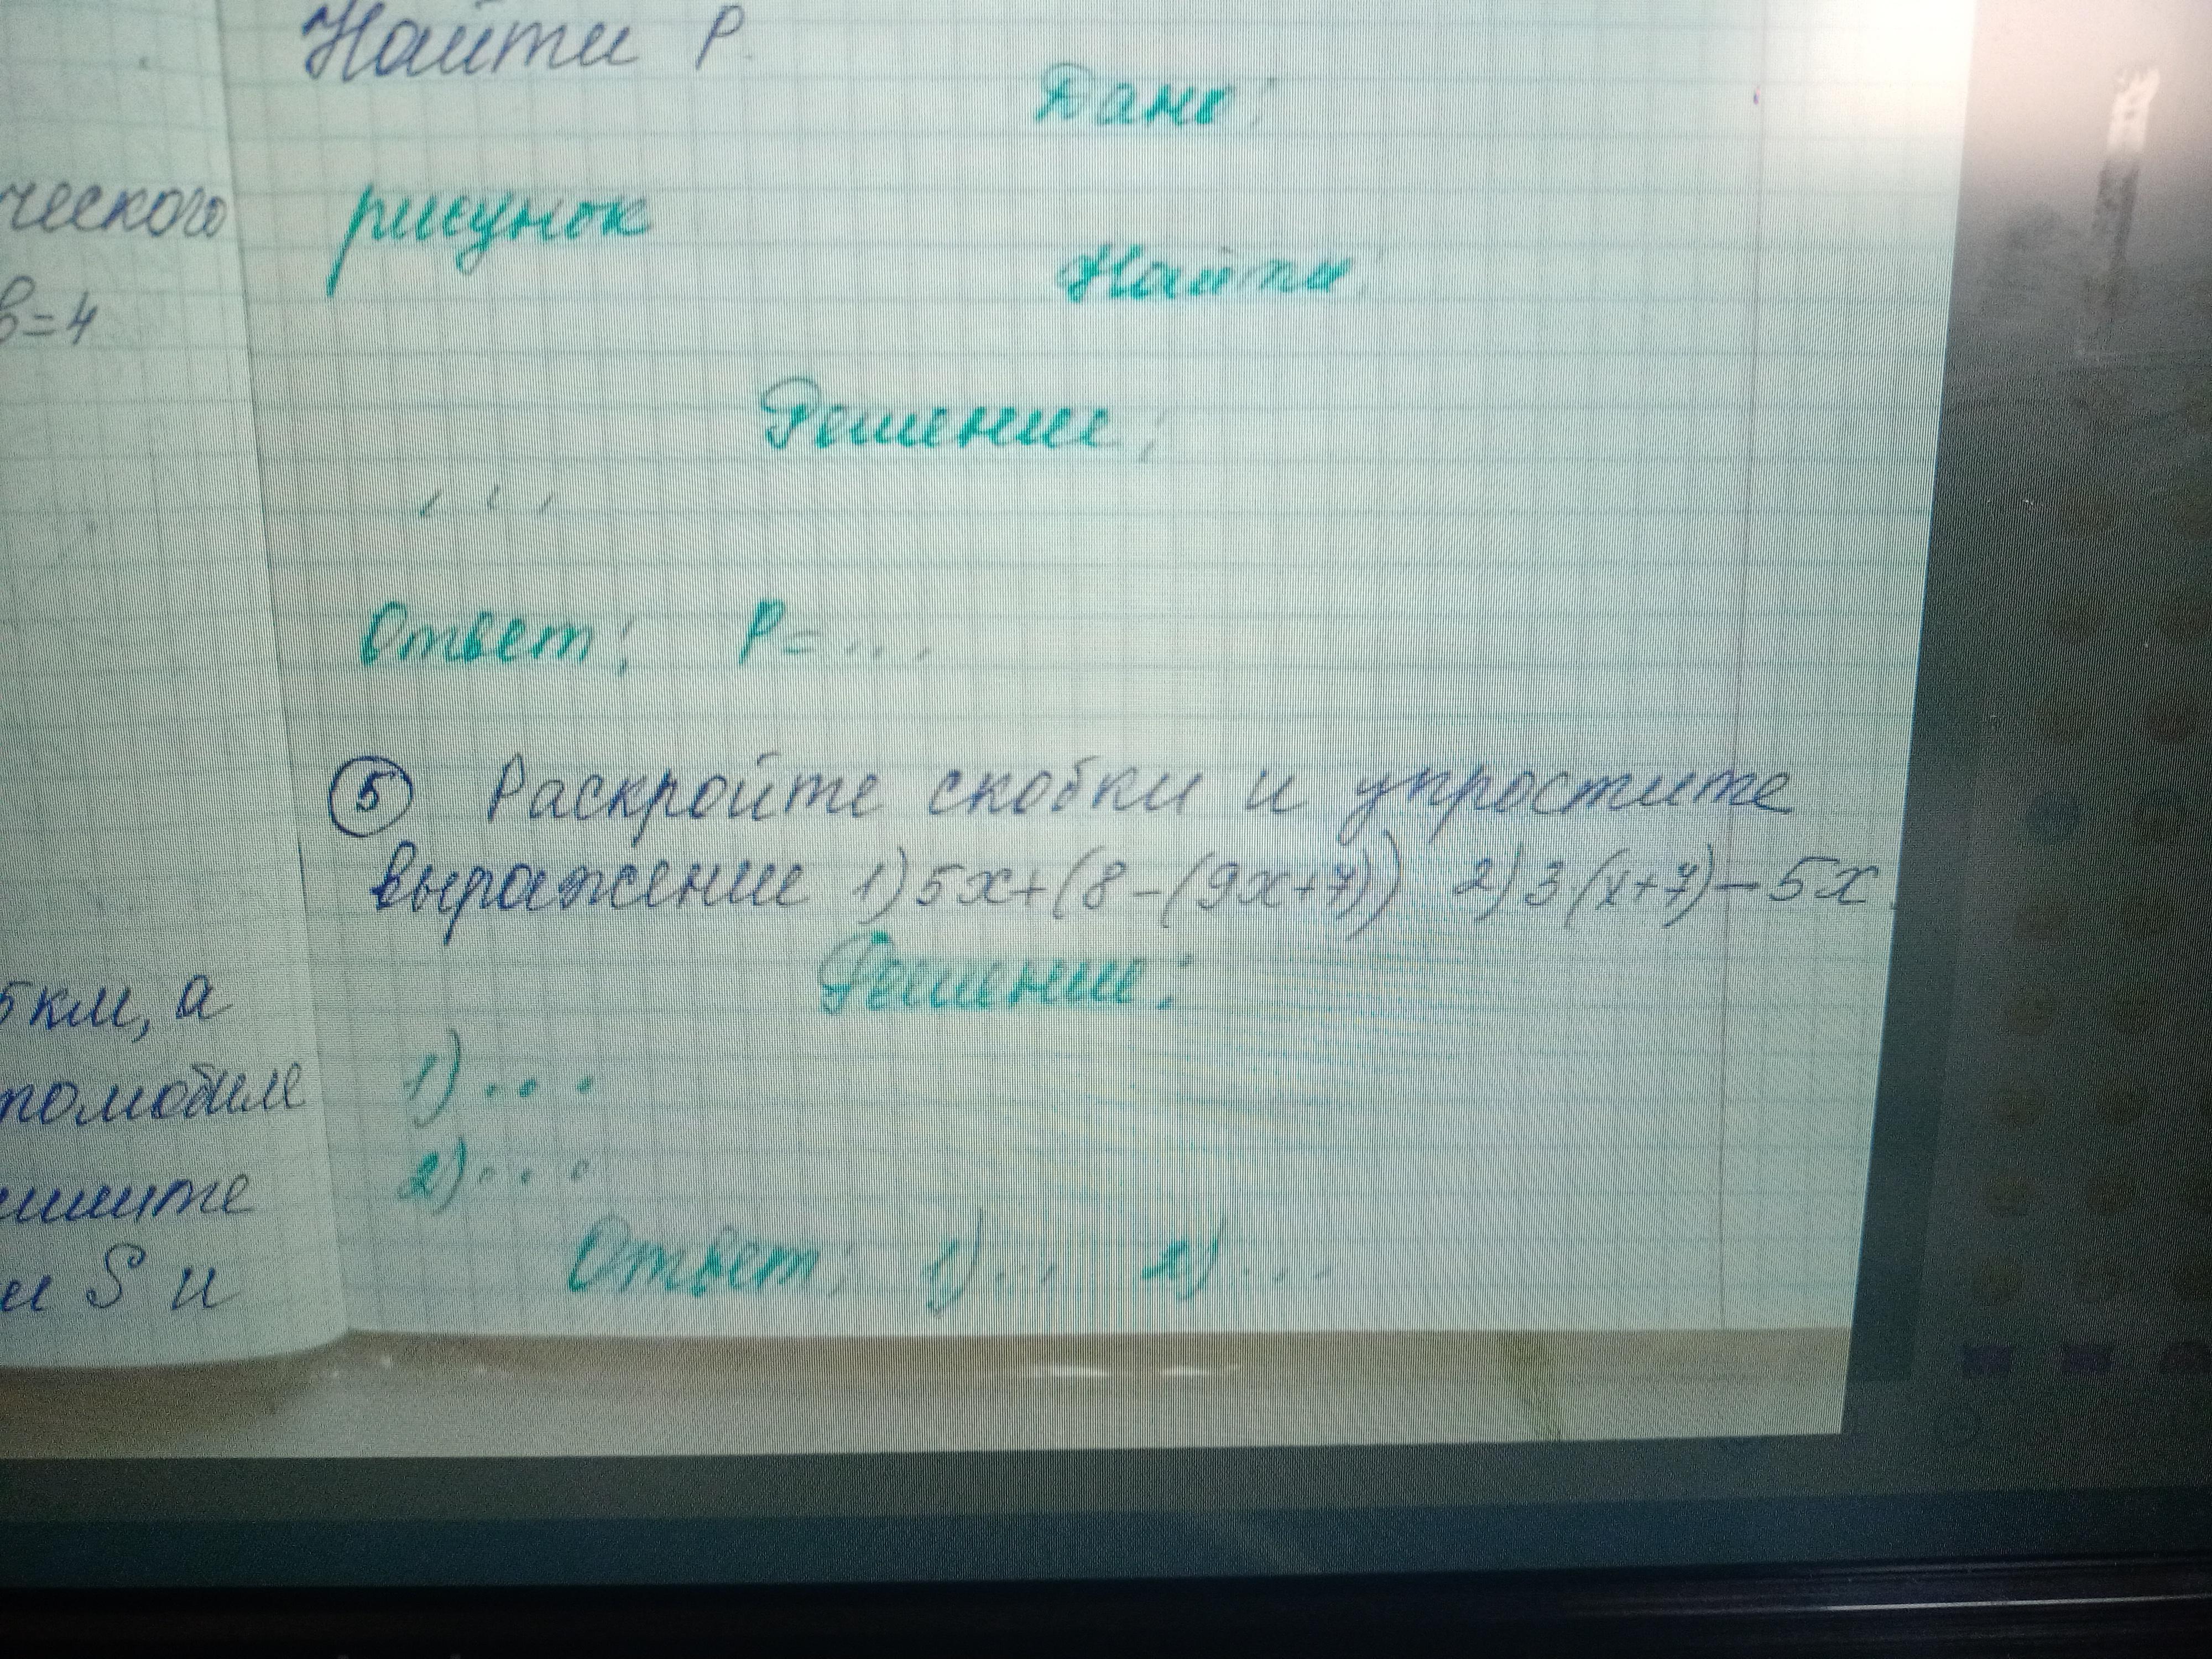 Найти P.
Дано:
ческого
рисунок
Найти:
в=4
Решение:
...
Ответ: P=...
⑤ Раскройте скобки и упростите
выражение 1) 5x+(8-(9x+7)) 2) 3(x+7)-5x.
Решение:
км, а
1)...
томобиле
2)...
ишите
Ответ: 1)... 2)...
и S и